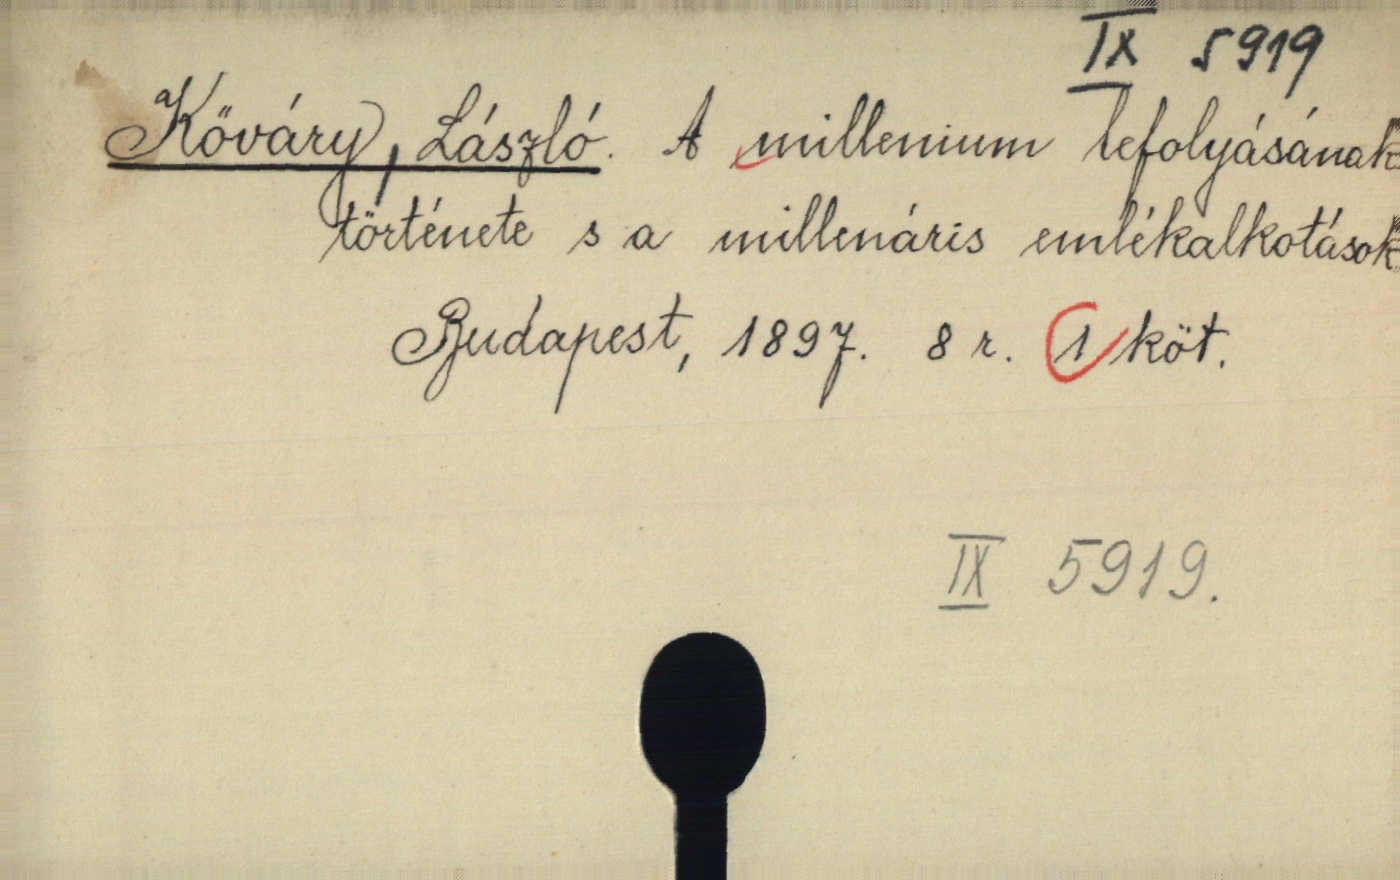 IX 5919
Kőváry, László. A millenium lefolyásának
története s a millenáris emlékalkotások
Budapest, 1897. 8 r. 1 köt.
IX 5919.